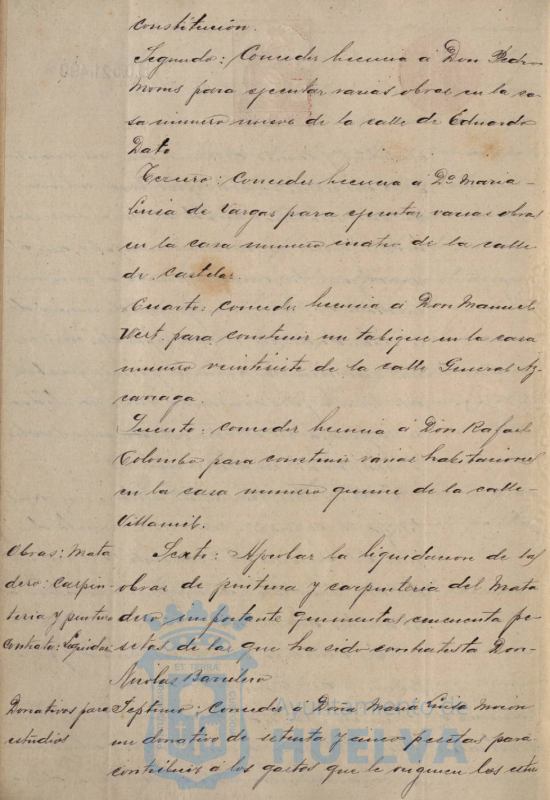 constitución.
Segundo: Conceder licencia á Don Pedro
Morris para ejecutar varias obras en la ca-
sa numero nueve de la calle de Eduardo
Dato
Tercero: Conceder licencia á Dª Maria-
Luisa de Vargas para ejecutar varias obras
en la casa numero cuatro de la calle
de Castelar.
Cuarto: conceder licencia á Don Manuel
Wert para construir un tabique en la casa
numero veintisiete de la calle General Az-
carraga.
Quinto: conceder licencia á Don Rafael
Colombo para construir varias habitaciones
en la casa numero quince de la calle-
Villamil.
Obras: Mata
dero: carpin-
teria y pintura
Contrata: Liquidac
Sexto: Aprobar la liquidacion de las
obras de pintura y carpinteria del Mata
dero importante quinientas cincuenta pe-
setas de las que ha sido contratista Don-
Nicolas
Donativos para
estudios
Septimo: Conceder á Doña Maria Luisa
un donativo de setenta y cinco pesetas para
contribuir á los gastos que le originen los estu
ET TERRÆ
Ayuntamiento de
HUELVA